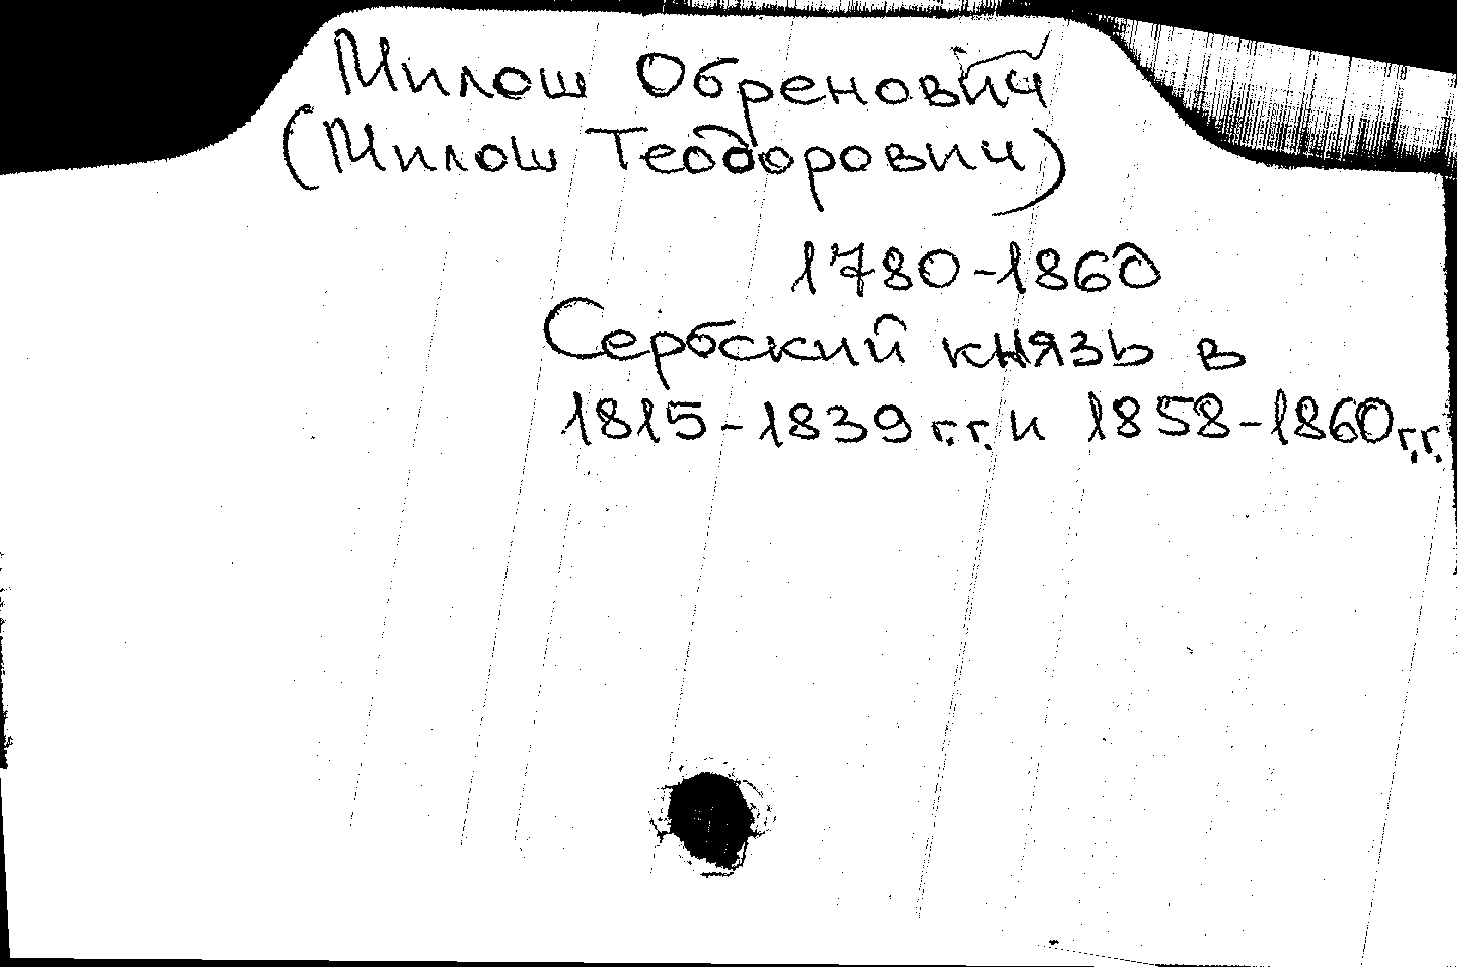 Милош Обренович
(Милош Теодорович)
1780-1860
Сербский князь в
1815-1839 г.г. и 1858-1860 г.г.